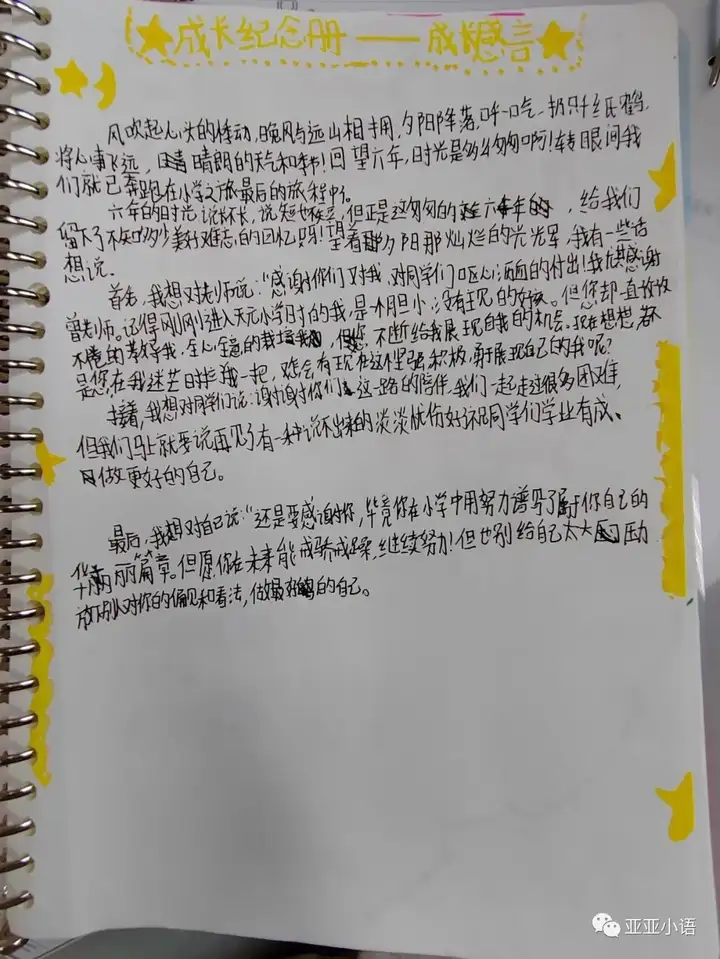 成长纪念册——成长感言
风吹起心头的悸动，晚风与远山相拥，夕阳降落，呼一口气，扔只千纸鹤，
将心事飞远，晴朗的天气和季节！回望六年，时光是多么匆匆啊！转眼间我
们就已奔跑在小学之旅最后的旅程中。
六年的时光说长不长，说短也不短，但正是这匆匆的六年的，给我们
留下了不知多少美好难忘的回忆呀！望着那夕阳那灿烂的光晕，我有一些话
想说。
首先，我想对老师说："感谢你们对我、对同学们呕心沥血的付出！我尤其感谢
曾老师。记得刚刚进入天元小学时的我，是一个胆小、没有主见的女孩。但您却一直孜孜
不倦的教好我，全心全意的栽培我，但您，不断给我展现自我的机会。现在想想，都
是您，在我迷芒时推我一把，难会有现在这个坚强积极，勇于展现自己的我呢？
接着，我想对同学们说：谢谢对你们这一路的陪伴，我们一起走过很多困难，
但我们马上就要说再见了有一种说不出来的淡淡忧伤好祝同学们学业有成、
做更好的自己。
最后，我想对自己说："还是要感谢你，毕竟你在小学中用努力谱写了属于你自己的
华丽篇章。但愿你在未来能戒骄戒躁，继续努力！但也别给自己太大压力
放别人对你的偏见和看法，做最好的自己。
亚亚小语